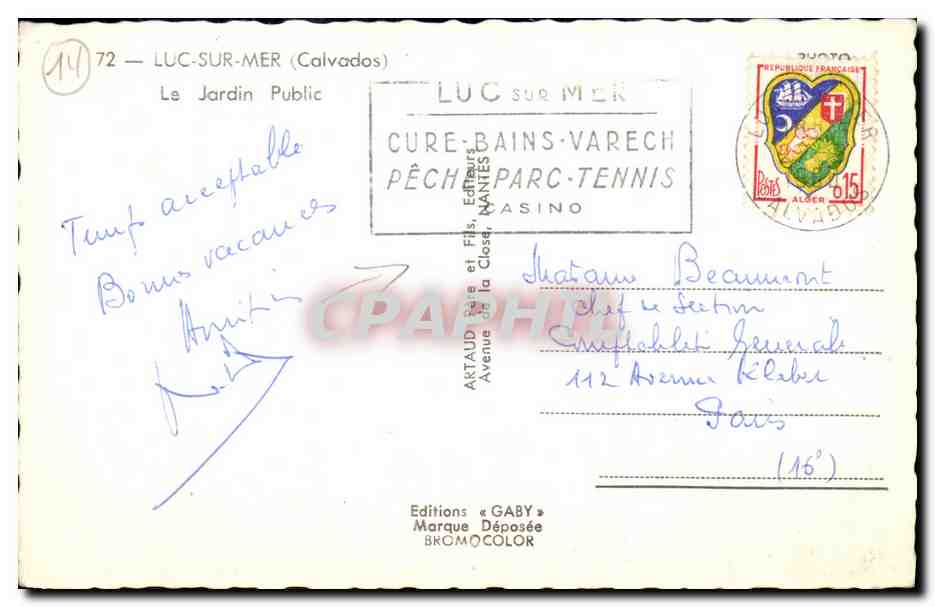 14
72 — LUC-SUR-MER (Calvados)
Le Jardin Public
LUC SUR MER
CURE-BAINS-VARECH
PÊCHE PARC-TENNIS
CASINO
PHOTO
REPUBLIQUE FRANÇAISE
POSTES
0,15
ALGER
CALVADOS
Temps acceptable
Bonnes vacances
Amitiés
ARTAUD Père et Fils, Editeurs
Avenue de la Close, NANTES
CPAPHIL
Madame Beaumont
Chef de Section
Comptabilité Générale
112 Avenue Kleber
Paris
(16°)
Editions « GABY »
Marque Déposée
BROMOCOLOR